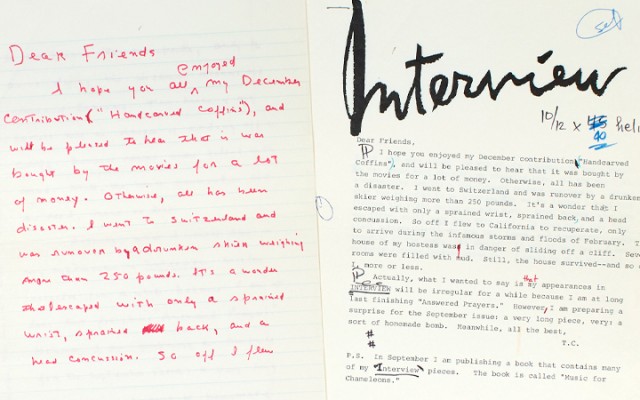 Dear Friends
enjoyed
I hope you all my December
contribution ("Handcarved Coffins"), and
will be pleased to hear that it was
bought by the movies for a lot
of money. Otherwise, all has been
disaster. I went to Switzerland and
was runover by a drunken skier weighing
more than 250 pounds. It's a wonder
that escaped with only a sprained
wrist, sprained back, and a
head concussion. So off I flew
set
Interview
10/12 x 40 hel
Dear Friends,
I hope you enjoyed my December contribution "Handcarved
Coffins", and will be pleased to hear that it was bought by
the movies for a lot of money. Otherwise, all has been
a disaster. I went to Switzerland and was runover by a drunken
skier weighing more than 250 pounds. It's a wonder that I
escaped with only a sprained wrist, sprained back, and a head
concussion. So off I flew to California to recuperate, only
to arrive during the infamous storms and floods of February. T
house of my hostess was in danger of sliding off a cliff. Seve
rooms were filled with mud. Still, the house survived--and so
I, more or less.
that
Actually, what I wanted to say is my appearances in
INTERVIEW will be irregular for a while because I am at long
last finishing "Answered Prayers." However, I am preparing a
surprise for the September issue: a very long piece, very: a
sort of homemade bomb. Meanwhile, all the best,
T.C.
#
#
P.S. In September I am publishing a book that contains many
of my Interview pieces. The book is called "Music for
Chameleons."